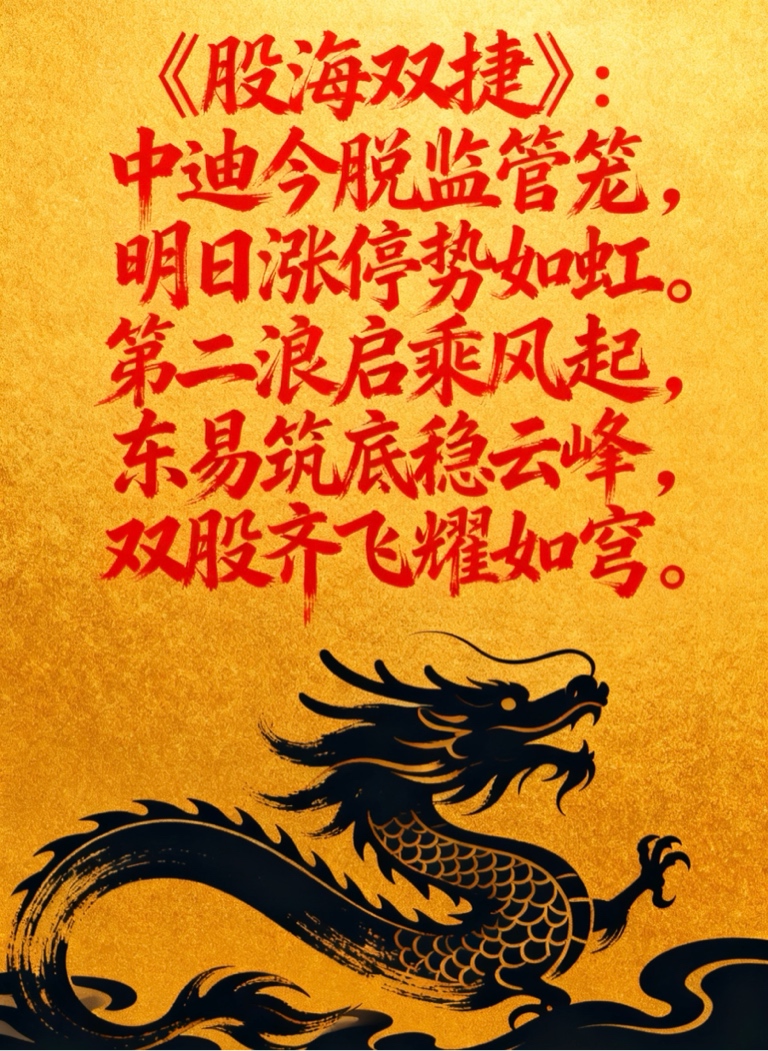 《股海双捷》：
中迪今脱监管笼，
明日涨停势如虹。
第二浪启乘风起，
东易筑底稳云峰，
双股齐飞耀如穹。